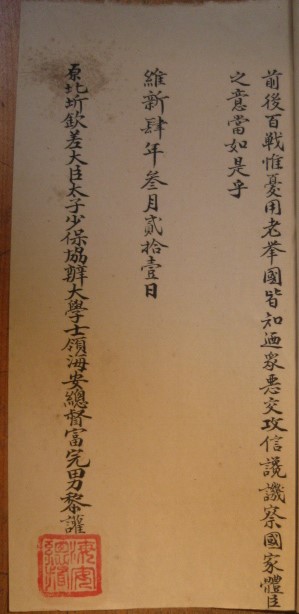 前後百戰惟憂用老舉國皆知迺衆惡交攻信讒譏察國家體臣
之意當如是乎
維新肆年叁月貳拾壹日
原北圻欽差大臣太子少保協辦大學士領海安總督富完男黎謹